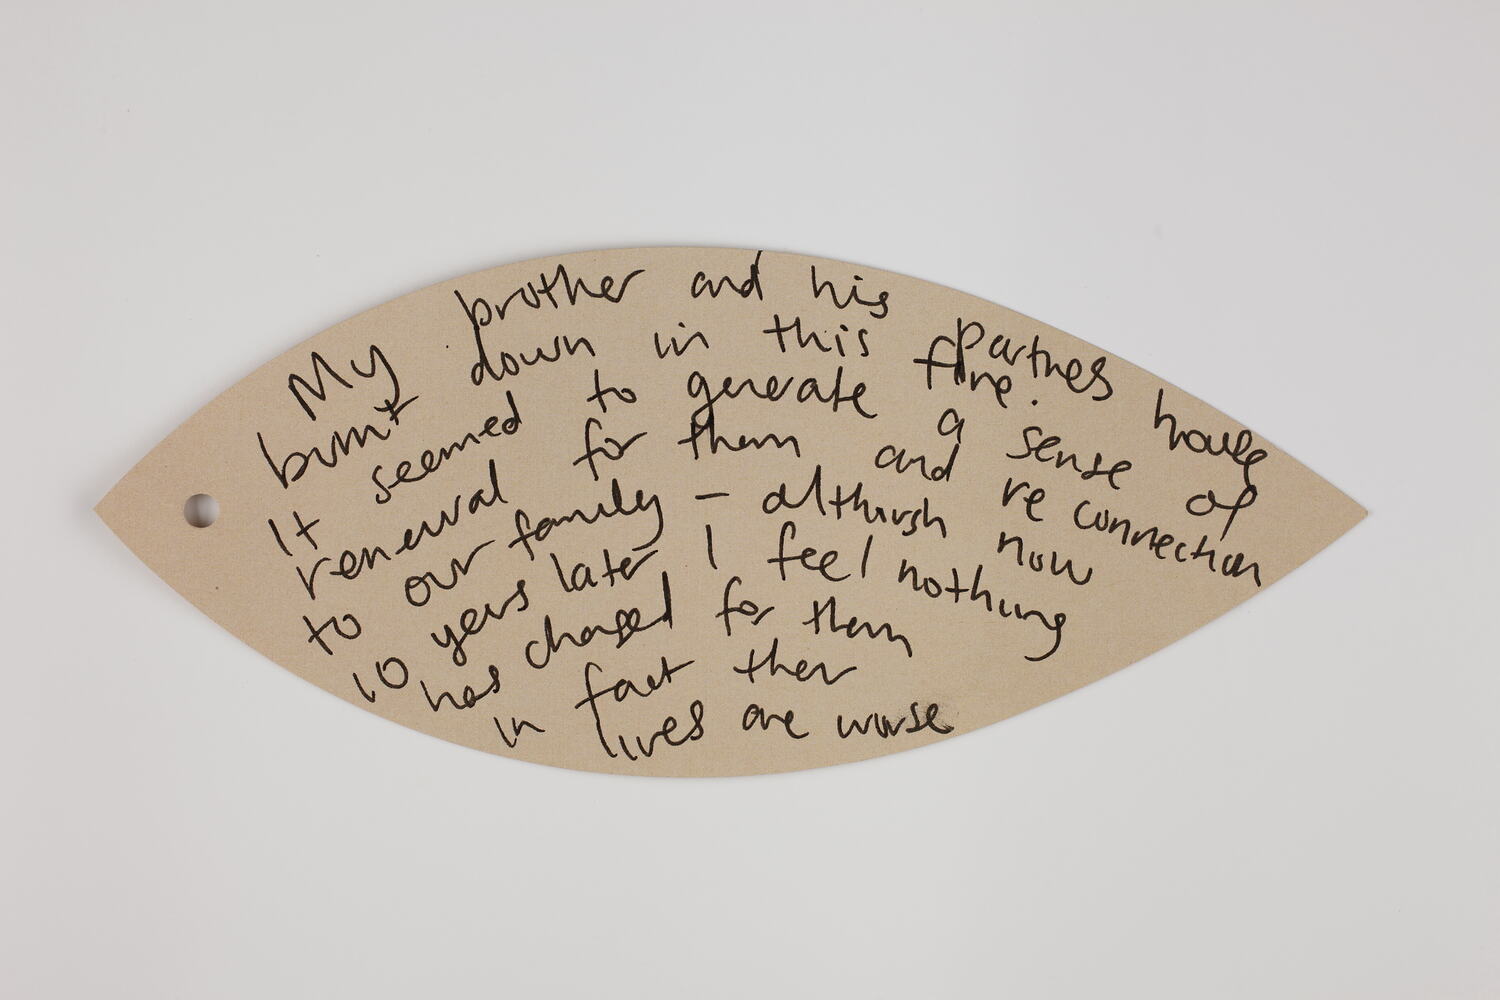 My brother and his partners house
burnt down in this fire.
It seemed to generate a sense of
renewal for them and re connection
to our family – although now
10 years later I feel nothing
has changed for them
in fact ther
lives are worse